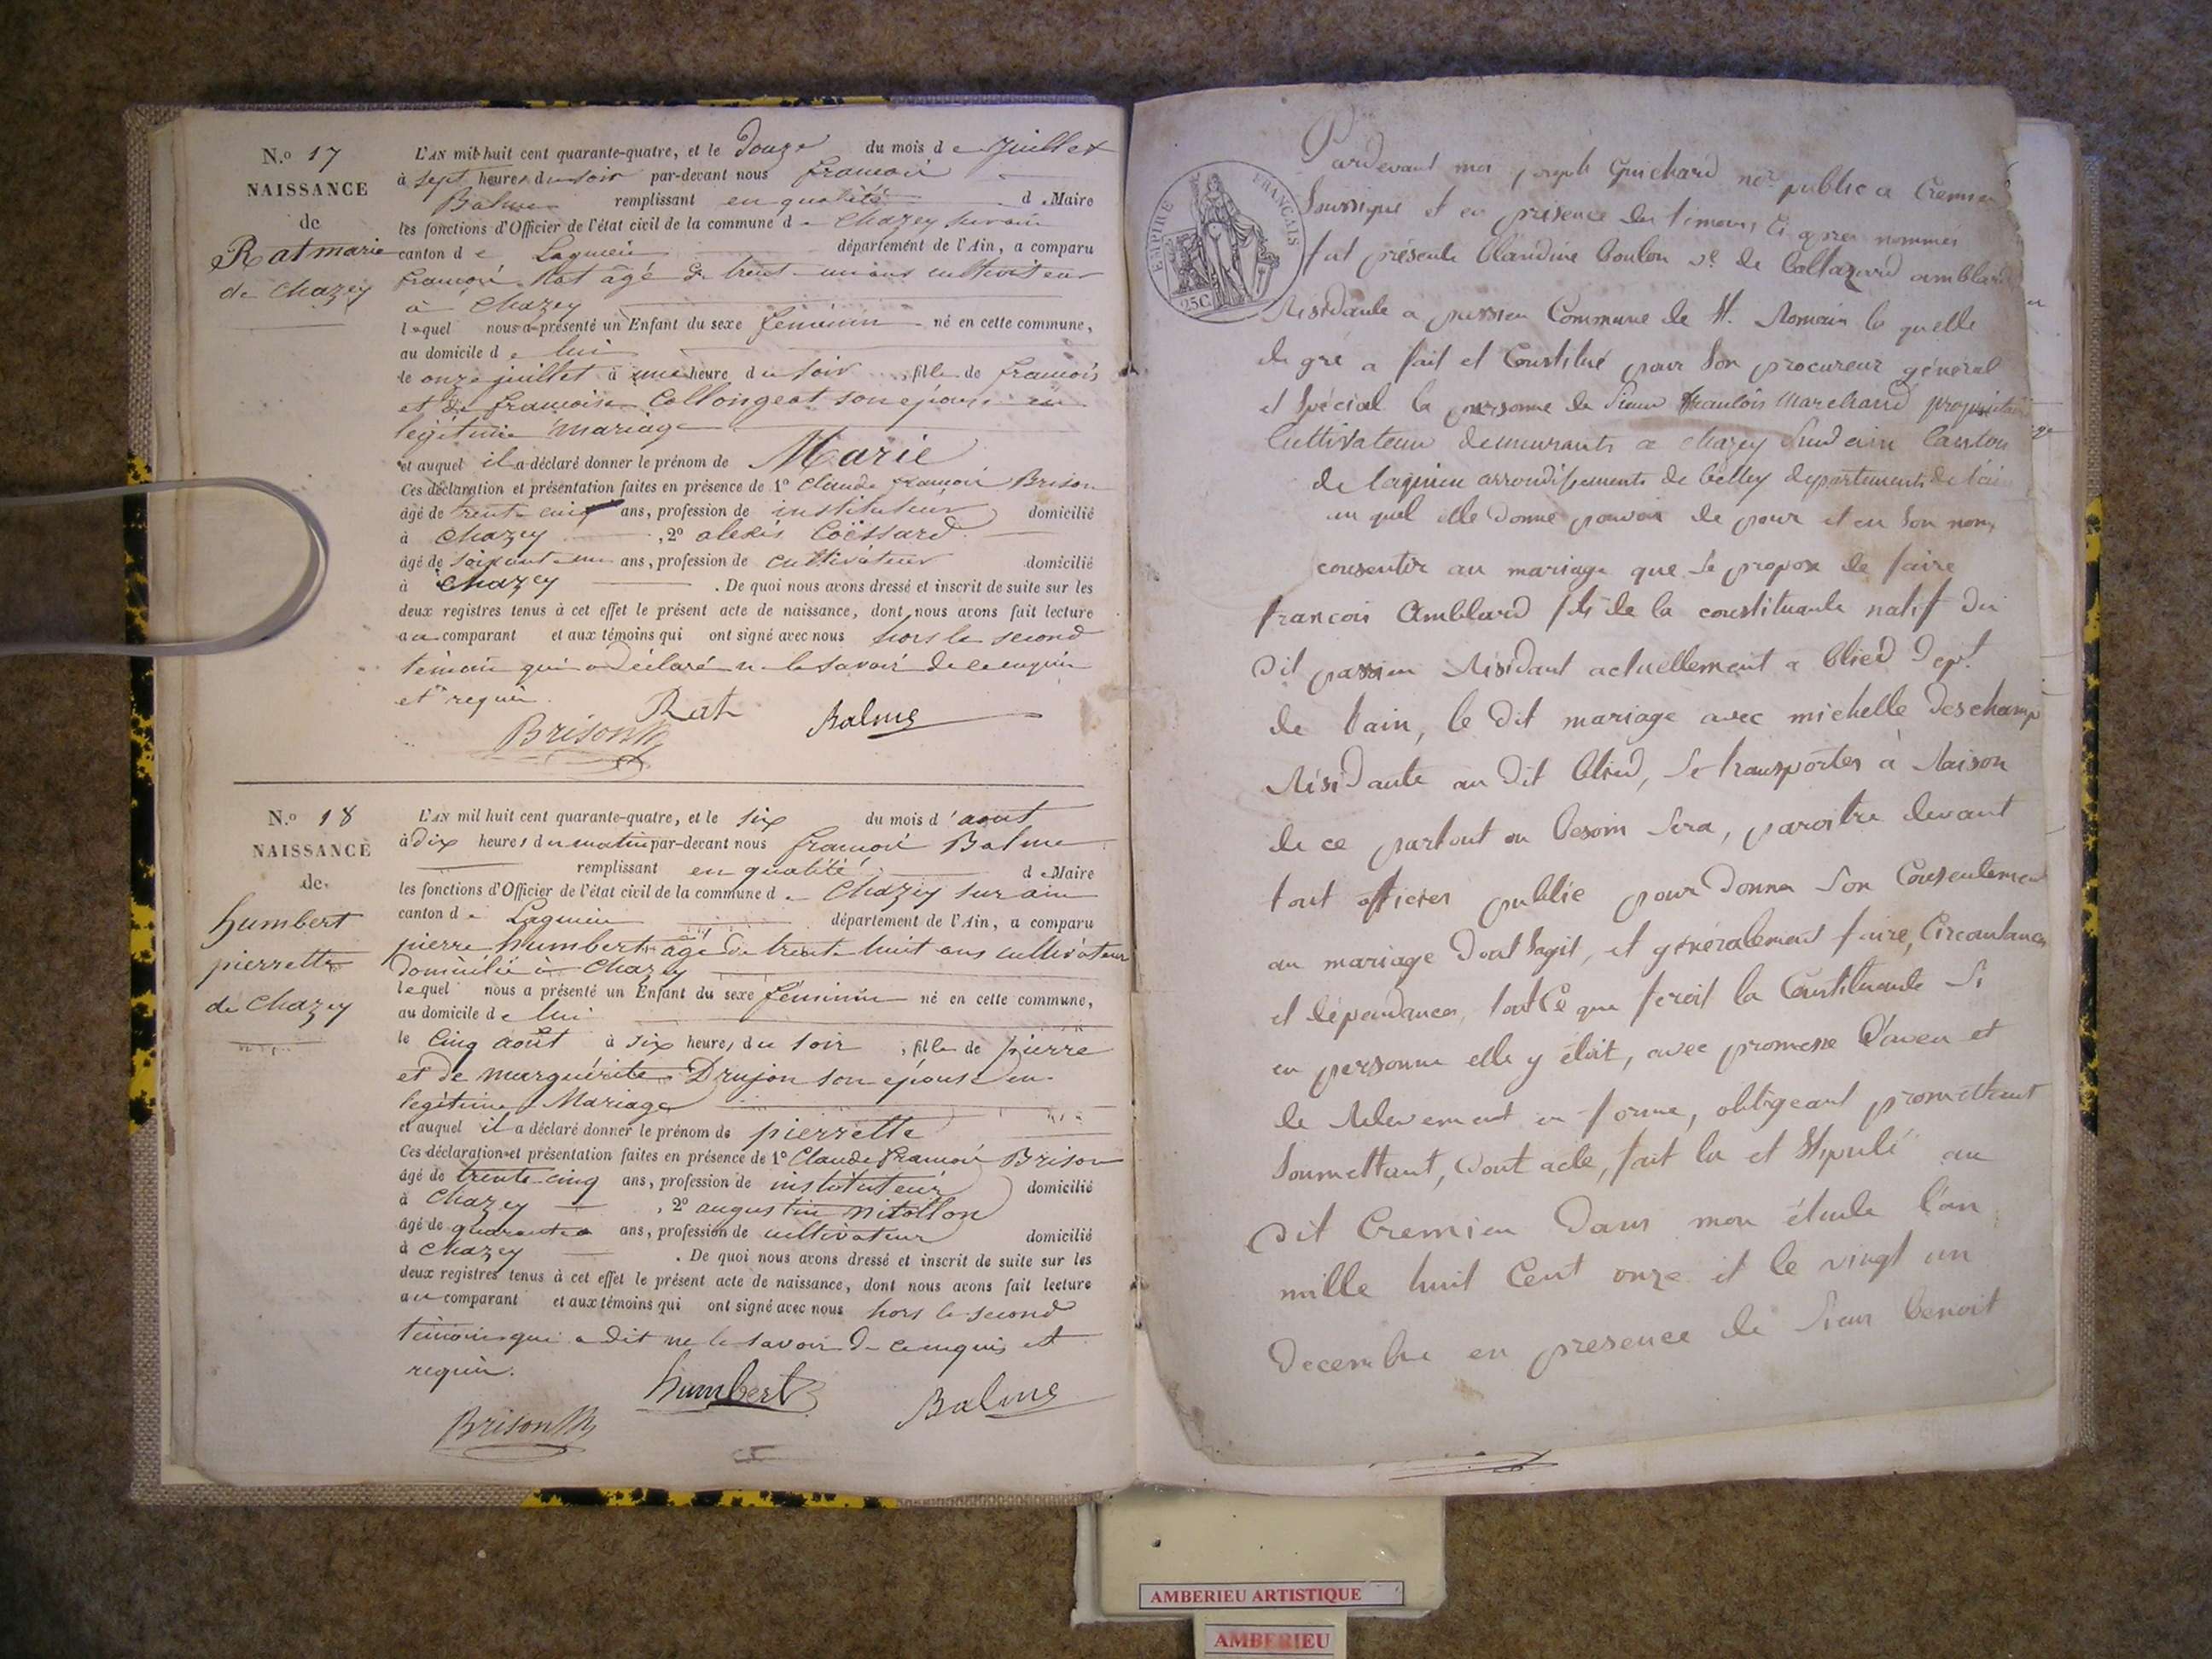 N.o 17
NAISSANCE
de
Rat marie
de Chazey
L'AN mil huit cent quarante-quatre, et le douze du mois de Juillet
à sept heures du soir par-devant nous françois
Balme remplissant en qualité de Maire
les fonctions d'Officier de l'état civil de la commune de Chazey sur ain
canton de Lagnieu département de l'Ain, a comparu
françois Rat âgé de trente un ans cultivateur
à Chazey
lequel nous a présenté un Enfant du sexe féminin né en cette commune,
au domicile de lui
le onze juillet à une heure du soir, fille de francois
et de francoise Collongeat son épouse en
légitime mariage
et auquel il a déclaré donner le prénom de Marie
Ces déclaration et présentation faites en présence de 1o Claude françois Brison
âgé de trente cinq ans, profession de instituteur domicilié
à Chazey, 2o alexis Coëssard
âgé de soixante un ans, profession de cultivateur domicilié
à Chazey. De quoi nous avons dressé et inscrit de suite sur les
deux registres tenus à cet effet le présent acte de naissance, dont nous avons fait lecture
au comparant et aux témoins qui ont signé avec nous hors le second
témoin qui a déclaré ne le savoir de ce enquis
et requis.
Rat Balme
Brison
N.o 18
NAISSANCE
de
humbert
pierrette
de Chazey
L'AN mil huit cent quarante-quatre, et le six du mois d'aout
à dix heures du matin par-devant nous françois Balme
remplissant en qualité de Maire
les fonctions d'Officier de l'état civil de la commune de Chazey sur ain
canton de Lagnieu département de l'Ain, a comparu
pierre humbert âgé de trente huit ans cultivateur
domicilié à Chazey
lequel nous a présenté un Enfant du sexe féminin né en cette commune,
au domicile de lui
le cinq août à six heures du soir, fille de pierre
et de marguérite Drujon son épouse en
legitime Mariage
et auquel il a déclaré donner le prénom de pierrette
Ces déclaration et présentation faites en présence de 1o Claude françois Brison
âgé de trente cinq ans, profession de instituteur domicilié
à Chazey, 2o augustin nitollon
âgé de quarante ans, profession de cultivateur domicilié
à Chazey. De quoi nous avons dressé et inscrit de suite sur les
deux registres tenus à cet effet le présent acte de naissance, dont nous avons fait lecture
au comparant et aux témoins qui ont signé avec nous hors le second
témoin qui a dit ne le savoir de ce enquis et
requis.
humbert Balme
Brison
EMPIRE FRANÇAIS
25C.
Pardevant moi joseph Guichard nre public a Cremieu
Soussigné et en présence des témoins ci apres nommés
fut présente Claudine Coulon ve de Baltazard amblard
Résidante a passieu Commune de St. Romain la quelle
de gré a fait et Constitué pour Son procureur général
et Spécial la personne de Sieur francois Marchand propriétaire
Cultivateur demeurants a chazey Sur ain Canton
de lagnieu arrondissements de belley departements de l'ain
au quel elle donne pouvoir de pour et en Son nom,
consentir au mariage que Se propose de faire
francois Amblard fils de la constituante natif du
dit passieu Résidant actuellement a blied Dept.
de l'ain, le dit mariage avec michelle deschamp
Résidante au dit blied, Se transporter à Raison
de ce partout ou besoin Sera, paroitre devant
tout officier public pour donner Son Consentement
au mariage dont Sagit, et généralement faire, Circonstances
et dépendances, tout Ce que feroit la Constituante Si
en personne elle y étoit, avec promesse d'aveu et
de Relevement en forme, obligeant promettant
Soumettant, dont acte, fait lu et Stipulé au
dit Cremieu dans mon étude l'an
mille huit Cent onze et le vingt un
decembre en presence de Sieur benoit
AMBERIEU ARTISTIQUE
AMBERIEU